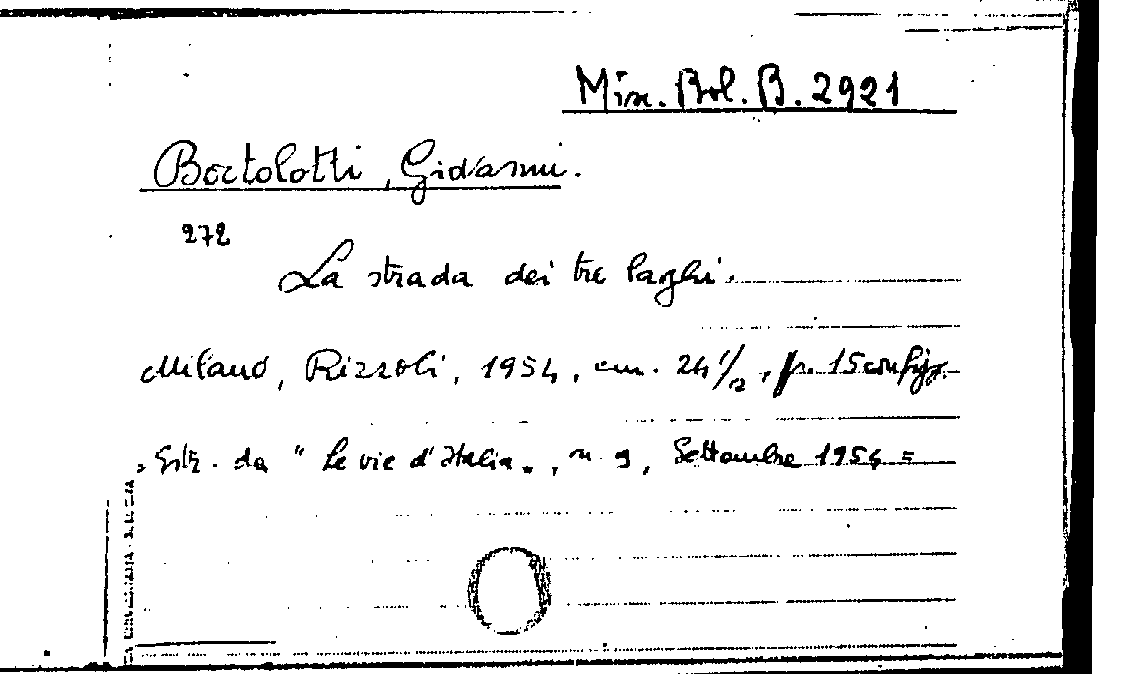 Misc. Bol. B. 2921
Bortolotti, Giovanni.
272
La strada dei tre laghi.
Milano, Rizzoli, 1954, cm. 24 1/2, p. 15 con figg.
= Estr. da "Le vie d'Italia", n 9, Settembre 1954 =